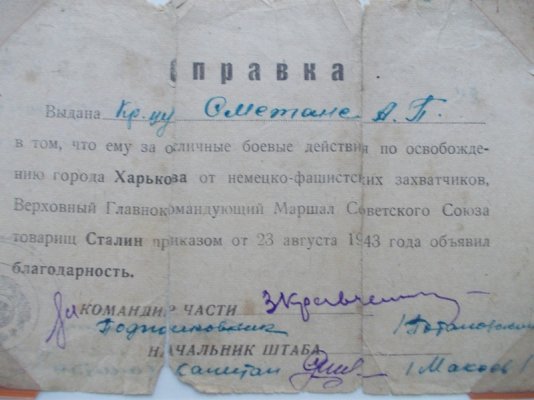 Справка
Выдана Кр-цу Сметане А. П.
в том, что ему за отличные боевые действия по освобожде-
нию города Харькова от немецко-фашистских захватчиков,
Верховный Главнокомандующий Маршал Советского Союза
товарищ Сталин приказом от 23 августа 1943 года объявил
благодарность.
КОМАНДИР ЧАСТИ
Подполковник
НАЧАЛЬНИК ШТАБА
капитан / Макеев /